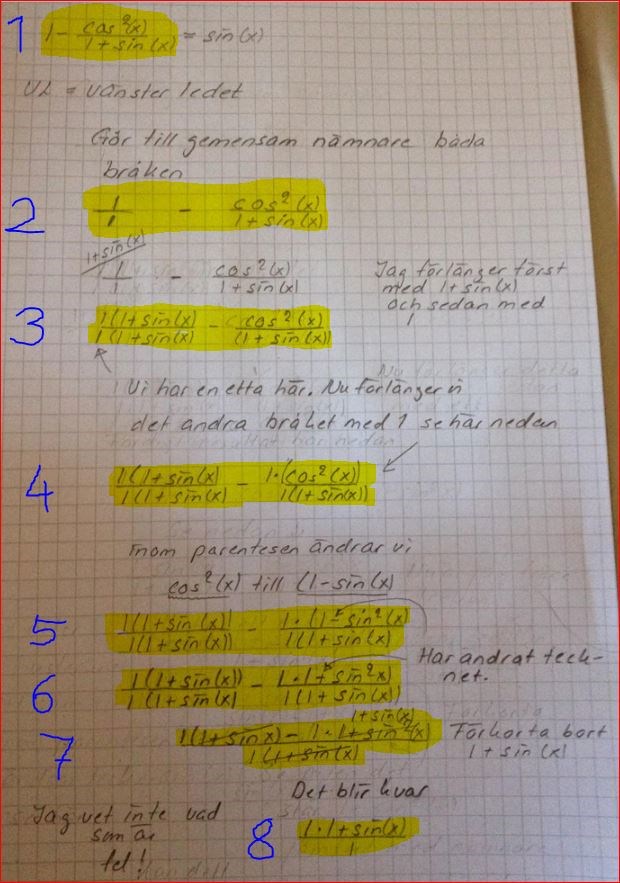 1 1 - cos²(x) / 1+sin(x) = sin(x)
VL = vänster ledet
Gör till gemensam nämnare båda
bråken
2 1/1 - cos²(x) / 1+sin(x)
1+sin(x)
1/1 - cos²(x) / 1+sin(x)
Jag förlänger först
med 1+sin(x)
och sedan med
1
3 1(1+sin(x) / 1(1+sin(x) - cos²(x) / (1+sin(x))
Vi har en etta här. Nu förlänger vi
det andra bråket med 1 se här nedan
4 1(1+sin(x) / 1(1+sin(x) - 1·(cos²(x) / 1(1+sin(x))
inom parentesen ändrar vi
cos²(x) till (1-sin(x)
5 1(1+sin(x)) / 1(1+sin(x)) - 1·(1-sin²(x) / 1(1+sin(x)
6 1(1+sin(x)) / 1(1+sin(x) - 1·1+sin²x) / 1(1+sin(x))
Har ändrat teck-
net.
1+sin(x)
7 1(1+sinx) - 1·1+sin²(x) / 1(1+sin(x)
Förkorta bort
1+sin(x)
Det blir kvar
8 1·1+sin(x) / 1
Jag vet inte vad
som är
fel!